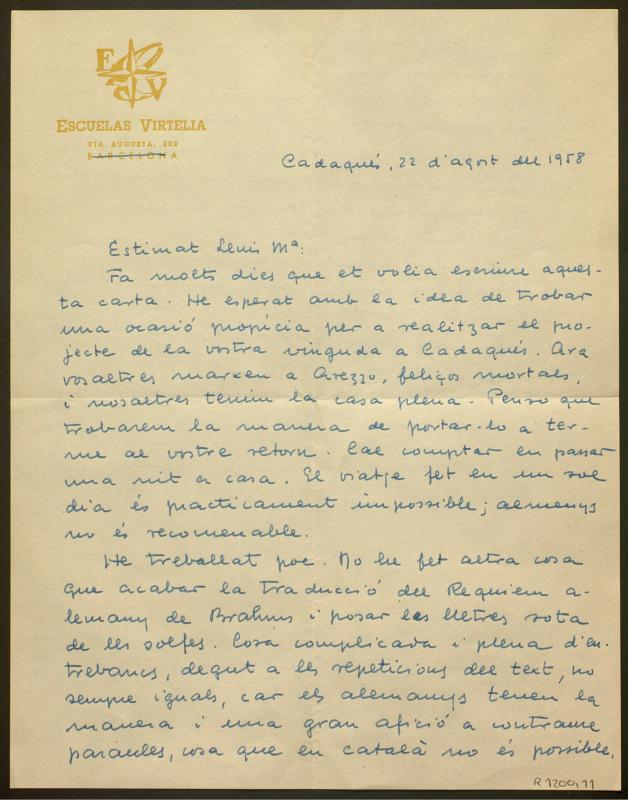 E V
ESCUELAS VIRTELIA
VIA AUGUSTA, 262
BARCELONA
Cadaqués, 22 d'agost del 1958
Estimat Lluis Mª:
Fa molts dies que et volia escriure aques-
ta carta. He esperat amb la idea de trobar
una ocasió propícia per a realitzar el pro-
jecte de la vostra vinguda a Cadaqués. Ara
vosaltres marxeu a Arezzo, feliços mortals,
i nosaltres tenim la casa plena. Penso que
trobarem la manera de portar-lo a ter-
me al vostre retorn. Cal comptar en passar
una nit a casa. El viatje fet en un sol
dia és practicament impossible; almenys
no és recomenable.
He treballat poc. No he fet altra cosa
que acabar la traducció del Requiem a-
lemany de Brahms i posar les lletres sota
de les solfes. Cosa complicada i plena d'en-
trebancs, degut a les repeticions del text, no
sempre iguals, car els alemanys tenen la
manera i una gran afició a contraure
paraules, cosa que en català no és possible.
R 1200,11